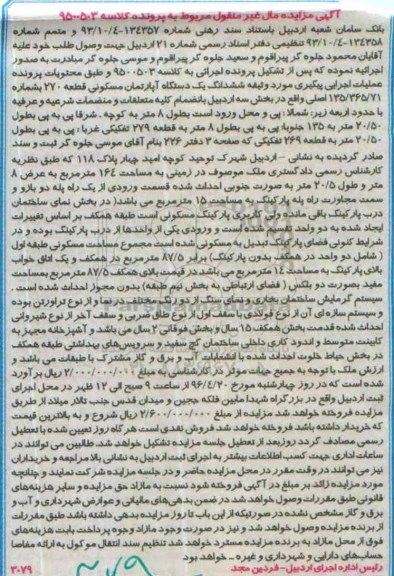 آگهی مزایده مال غیر منقول مربوط به پرونده کلاسه ۹۵۰۰۵۰۳
بانک سامان شعبه اردبیل باستناد سند رهنی شماره ۱۳۴۳۵۷-۹۳/۱۰/۴ و متمم شماره
۱۳۴۳۵۸-۹۳/۱۰/۴ تنظیمی دفتر اسناد رسمی شماره ۲۱ اردبیل جهت وصول طلب خود علیه
آقایان محمود جلوه گر پیرافوم و سعید جلوه گر پیرافوم و موسی جلوه گر مبادرت به صدور
اجرائیه نموده که پس از تشکیل پرونده اجرائی به کلاسه ۹۵۰۰۵۰۳ و طبق محتویات پرونده
عملیات اجرایی پیگیری مورد وثیقه ششدانگ یک دستگاه آپارتمان مسکونی قطعه ۲۷۰ بشماره
۱۳۵/۳۶۵/۷۱ اصلی واقع در بخش سه اردبیل بانضمام کلیه متعلقات و منضمات شرعیه و عرفیه
با حدود اربعه زیر: شمالا: پی و محل ورود است بطول ۸ متر به کوچه. شرقا پی به پی بطول
۲۰/۵۰ متر به ۱۳۵ جنوبا: پی به پی بطول ۸ متر به قطعه ۲۷۹ تفکیکی غربا: پی به پی بطول
۲۰/۵۰ متر به قطعه ۲۶۹ تفکیکی که صفحه ۳ دفتر ۲۲۶ بنام آقای موسی جلوه گر ثبت و سند
صادر گردیده به نشانی - اردبیل شهرک توحید کوچه امید چهار پلاک ۱۱۸ که طبق نظریه
کارشناس رسمی دادگستری ملک موصوف در زمینی به مساحت ۱۶۴ مترمربع به عرض ۸
متر و طول ۲۰/۵ متر به صورت جنوبی احداث شده قسمت ورودی از یک راه پله دو بازو و
سمت مجاورت راه پله پارکینگ به مساحت ۱۵ مترمربع می باشد( در بخش نمای ساختمان
درب پارکینگ باقی مانده ولی کاربری پارکینگ مسکونی است طبقه همکف بر اساس تغییرات
ایجاد شده به دو واحد تقسیم شده است و ورودی یکی از واحدها از درب پارکینگ بوده و در
شرایط کنونی فضای پارکینگ تبدیل به مسکونی شده است مجموع مساحت مسکونی طبقه اول
( شامل دو واحد در همکف بدون پارکینگ) برابر ۸۷/۵ مترمربع در همکف و یک اتاق خواب
بالای پارکینگ به مساحت ۱۴ مترمربع می باشد در قسمت بالای همکف ۸۷/۵ مترمربع بمساحت
مفید بصورت دو بلکس ( فضای ارتباطی به بخش نیم طبقه) بدون مجوز احداث شده است.
سیستم گرمایش ساختمان بخاری و نمای سنگ از دو رنگ مختلف در نما و از نوع تراورتن بوده
و سیستم سازه ای آن از نوع فولادی با سقف اول از نوع طاق ضربی و سقف آخر از نوع شیروانی
احداث شده قدمت بخش همکف ۱۵ سال و بخش فوقانی ۲ سال می باشد و آشپزخانه مجهز به
کابینت متوسط و اندود کاری داخلی ساختمان گچ سفید و سرویس‌های بهداشتی طبقه همکف
در بخش حیاط خلوت احداث شده با انشعابات آب و برق و گاز مشترک با طبقات می باشد و
ارزش ملک با توجه به جمیع جهات موثر در کارشناسی به مبلغ ۲/۰۰۰/۰۰۰/۰۰۰ ریال برآورد
شده است که در روز چهارشنبه مورخ ۹۶/۴/۲۰ از ساعت ۹ صبح الی ۱۲ ظهر در محل اجرای
ثبت اردبیل واقع در بزرگراه شهدا مابین فلکه ججین و میدان قدس جنب تالار میلاد از طریق
مزایده فروخته خواهد شد مزایده از مبلغ ۲/۶۰۰/۰۰۰/۰۰۰ ریال شروع و به بالاترین قیمت
که خریدار داشته باشد فروخته خواهد شد فروش نقدی است هر گاه روز تعیین شده با تعطیل
رسمی مصادف گردد روز بعد از تعطیل جلسه مزایده تشکیل خواهد شد. طالبین می توانند در
ساعات اداری جهت کسب اطلاعات بیشتر به اجرای ثبت اردبیل به نشانی بالا مراجعه و خریداران
نیز می توانند در وقت مقرر در محل مزایده حاضر و در جلسه مزایده شرکت نمایند و چنانچه
مورد مزایده زائد بر مبلغ در آگهی فروخته شود نسبت به مازاد حق مزایده و سایر هزینه‌های
قانونی طبق مقررات وصول خواهد شد در ضمن بدهی‌های مالیاتی و عوارض شهرداری و آب و
برق و گاز مشخص نشده در صورتیکه از این باب تا روز مزایده بدهی داشته باشد طبق مقررات
از برنده مزایده وصول خواهد شد و نیز در صورت وجود مازاد وجوه پرداخت بابت هزینه‌های
فوق از محل مازاد به برنده مزایده مسترد خواهد شد تنظیم سند انتقال موکول به ارائه مفاصا
حساب‌های دارایی و شهرداری و غیره .. خواهد بود
رئیس اداره اجرای اردبیل - فردین مجد
۳۰۷۹